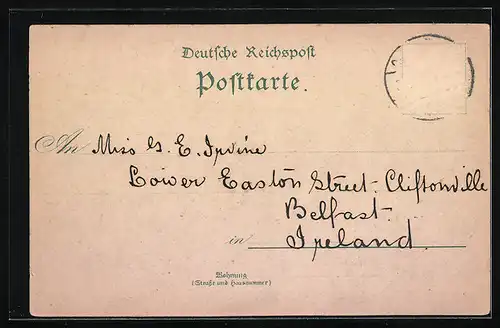 Deutsche Reichspost
Postkarte.
An Miss G. E. Irvine
Lower Easton Street. Cliftonville
Belfast.
in Ireland.
Wohnung
(Straße und Hausnummer)